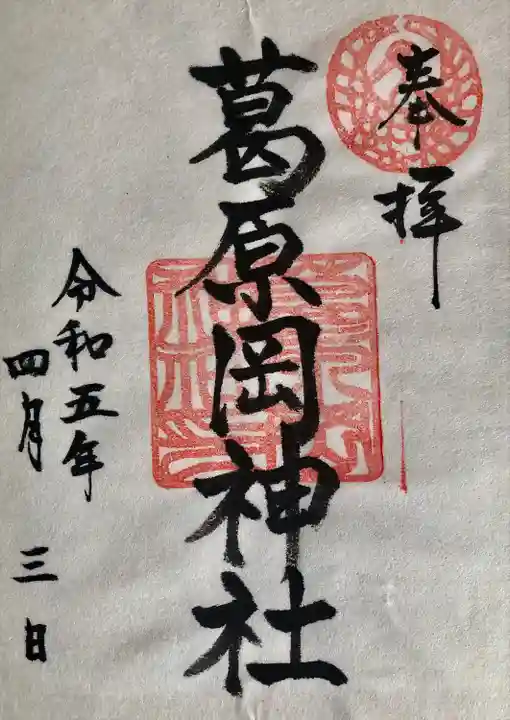 奉拝
葛原岡神社
令和五年
四月三日